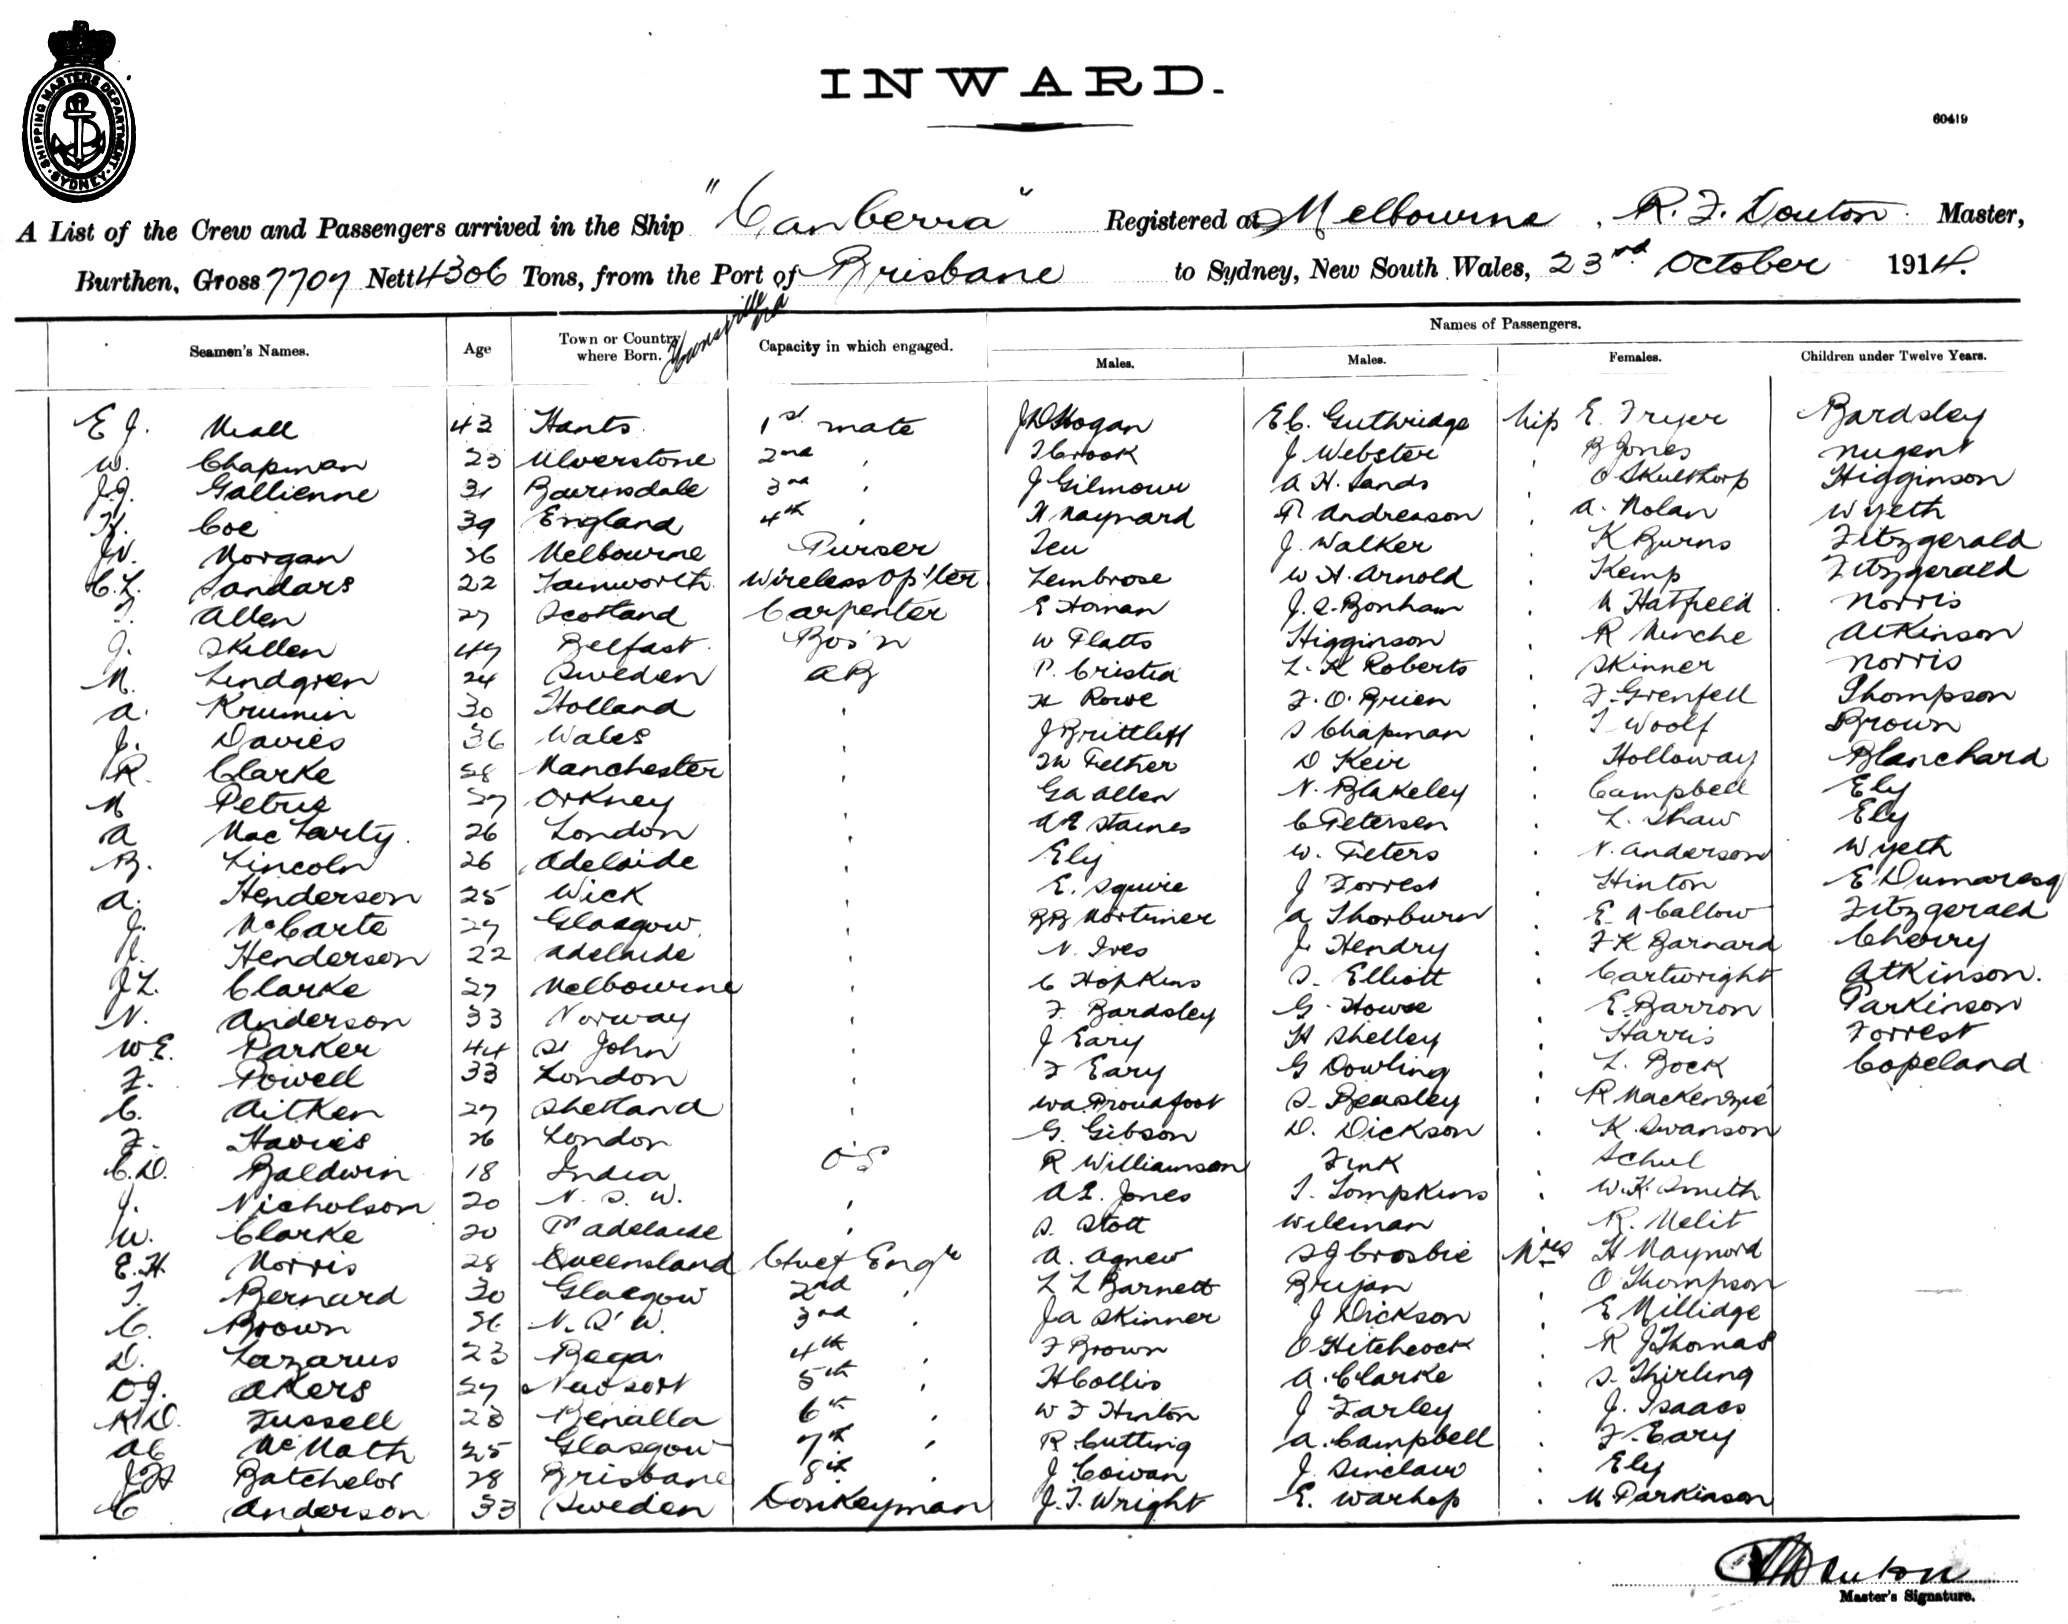 SHIPPING MASTERS DEPARTMENT SYDNEY
INWARD.
60419
A List of the Crew and Passengers arrived in the Ship "Canberra" Registered at Melbourne, R. F. Douton Master,
Burthen, Gross 7707 Nett 4306 Tons, from the Port of Brisbane to Sydney, New South Wales, 23rd October 1914.
Townsville via
Seamen's Names. Age Town or Country where Born. Capacity in which engaged. Names of Passengers.
Males. Males. Females. Children under Twelve Years.
E J. Neall 43 Hants. 1st mate J D Hogan E C. Guthridge Miss E. Fryer Bardsley
W. Chapman 23 Ulverstone 2nd , T Crook J Webster , B Jones Nugent
J. J. Gallienne 31 Bairnsdale 3rd , J Gilmour A H. Sands , O Skulthorp Higginson
H. Coe 39 England 4th , H Maynard P. Andreason , A. Nolan Wyeth
W. Morgan 36 Melbourne Purser J. Walker , K Burns Fitzgerald
C. L. Sandars 22 Tamworth Wireless Op'ter Lembrose W H. Arnold , Kemp Fitzgerald
T. Allen 27 Scotland Carpenter E Homan J. S. Bonham , M Hatfield Norris
J. Skillen 47 Belfast. Bos'n W Platts Higginson , R Minche Atkinson
M. Lindgren 24 Sweden AB P. Cristea L. K Roberts , Skinner Norris
A. Krumin 30 Holland , H Rowe F. O. Brien , F. Grenfell Thompson
J. Davies 36 Wales , J Brittliff S Chapman , T Woolf Brown
R. Clarke 28 Manchester , T W Fether D Keir , Holloway Blanchard
M Petrie 27 Orkney , G A Allen N. Blakeley , Campbell Ely
A MacLarty. 26 London , A E Staines C Petersen , L. Shaw Ely
B. Lincoln 26 Adelaide , Ely W. Peters , N. Anderson Wyeth
A. Henderson 25 Wick , E. Squire J Forrest , Hinton E Dumaresq
J. McCarte 27 Glasgow , B B Mortimer A Thorburn , E. McCallow Fitzgerald
J. Henderson 22 Adelaide , N. Ives J. Hendry , F K Barnard Cherry
J L. Clarke 27 Melbourne , C Hopkins S. Elliott , Cartwright Atkinson.
N. Anderson 33 Norway , F. Bardsley G. Howse , E. Barron Parkinson
W E. Parker 44 St John , J Eary H Shelley , Harris Forrest
F. Powell 33 London , F Eary G Dowling , L. Bock Copeland
C. Aitken 27 Shetland , W A. Proudfoot S. Beasley , R Mackenzie
F. Davies 26 London , G. Gibson D. Dickson , K. Swanson
C. D. Baldwin 18 India O S R Williamson Fink Schul
J. Nicholson 20 N. S. W. , A E. Jones T. Tompkins , W. K. Smith
W. Clarke 20 Pt Adelaide , S. Stott Wileman , R. Melit
E. H. Norris 28 Queensland Chief Engr A. Agnew S J Crosbie Mrs H Maynord
T. Bernard 30 Glasgow 2nd , L L Barnett Brijan , O Thompson
C. Brown 26 N. S. W. 3rd , J A Skinner J Dickson , E Millidge
D. Lazarus 23 Bega 4th , F Brown O Hitchcock , R J Thomas
O J. Akers 27 Newport 5th , H Collis A. Clarke , S. Thirling
K D. Fussell 28 Benalla 6th , W F Hinton J Farley , J. Isaacs
A C McMath 25 Glasgow 7th , R. Cutting A. Campbell , F. Eary
J H Batchelor 28 Brisbane 8th , J Cowan J. Sinclair , Ely
C Anderson 33 Sweden Donkeyman J. T. Wright E. Warhop , M Parkinson
R F Douton
Master's Signature.